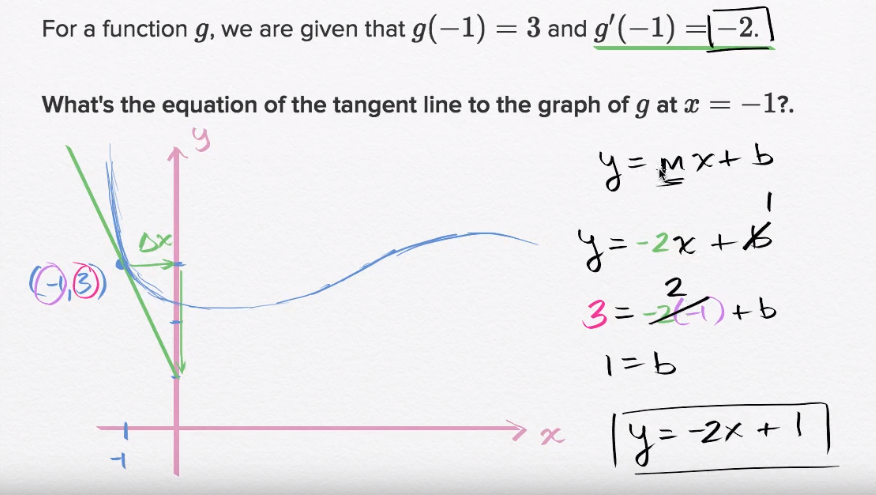 For a function g, we are given that g(−1) = 3 and g′(−1) = −2.
What's the equation of the tangent line to the graph of g at x = −1?.
y
y = mx + b
1
Δx
y = -2x + b
(-1, 3)
2
3 = -2(-1) + b
1 = b
x
y = -2x + 1
-1